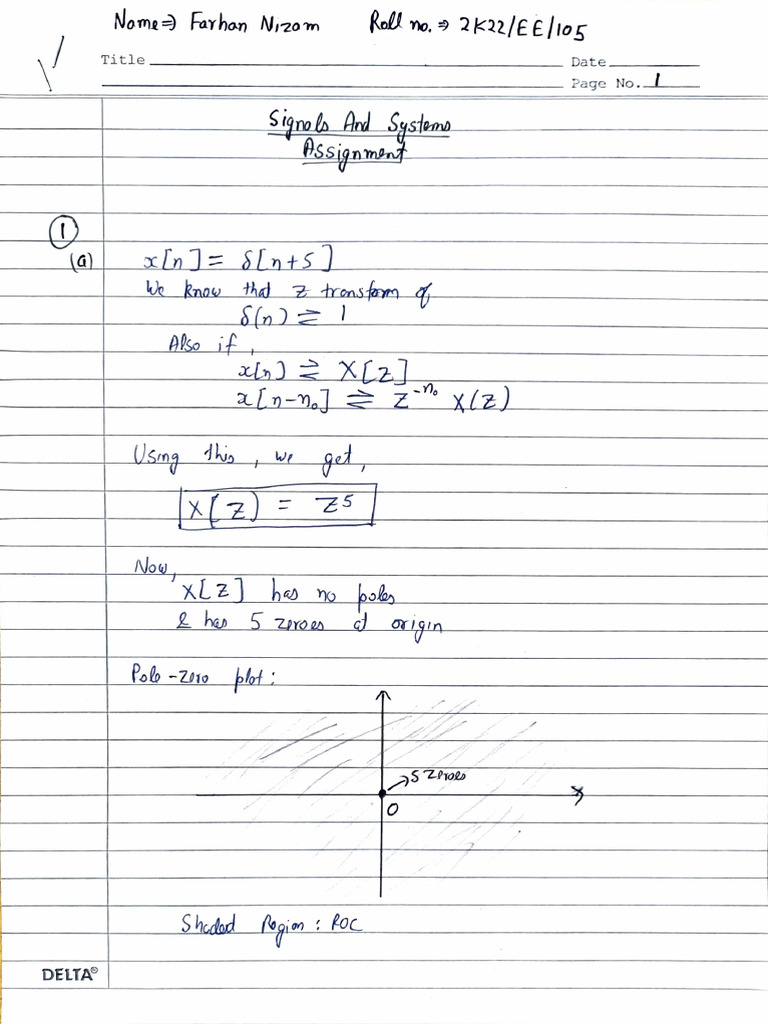 Name⇒ Farhan Nizam Roll no.⇒ 2K22/EE/105
Title Date
Page No. 1
Signals And Systems
Assignment
1
(a) x[n] = δ[n+5]
We know that z transform of
δ(n) ⇌ 1
Also if,
x[n) ⇌ X[Z]
x[n-n₀] ⇌ Z^-n₀ X(Z)
Using this, we get,
X[Z) = Z^5
Now,
X[Z] has no poles
& has 5 zeroes at origin
Pole-zero plot:
5 zeroes
O
Shaded Region : ROC
DELTA®